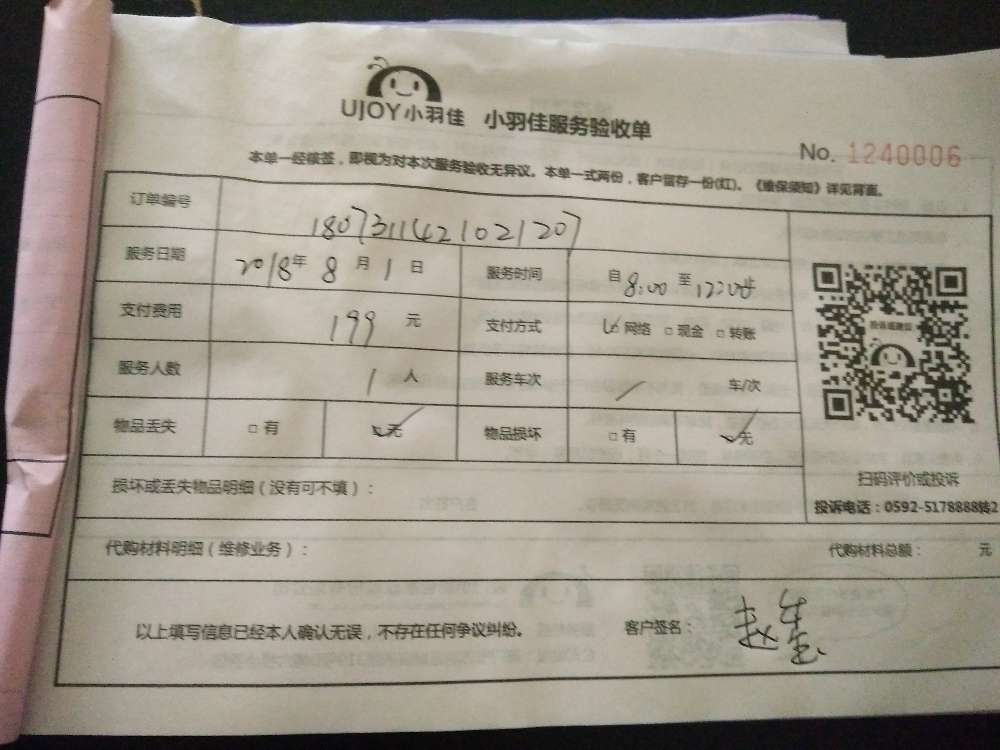 UJOY小羽佳 小羽佳服务验收单
No. 1240006
本单一经核签，即视为对本次服务验收无异议。本单一式两份，客户留存一份(红)。《维保须知》详见背面。
订单编号 1807311421021207
服务日期 2018年 8月 1日 服务时间 自8:00至12:00
支付费用 199 元 支付方式 ☑网络 □现金 □转账
服务人数 1 人 服务车次 / 车/次
物品丢失 □有 ☑无 物品损坏 □有 ☑无
投诉或建议
扫码评价或投诉
投诉电话：0592-5178888转2
损坏或丢失物品明细（没有可不填）：
代购材料明细（维修业务）： 代购材料总额： 元
以上填写信息已经本人确认无误，不存在任何争议纠纷。 客户签名： 赵